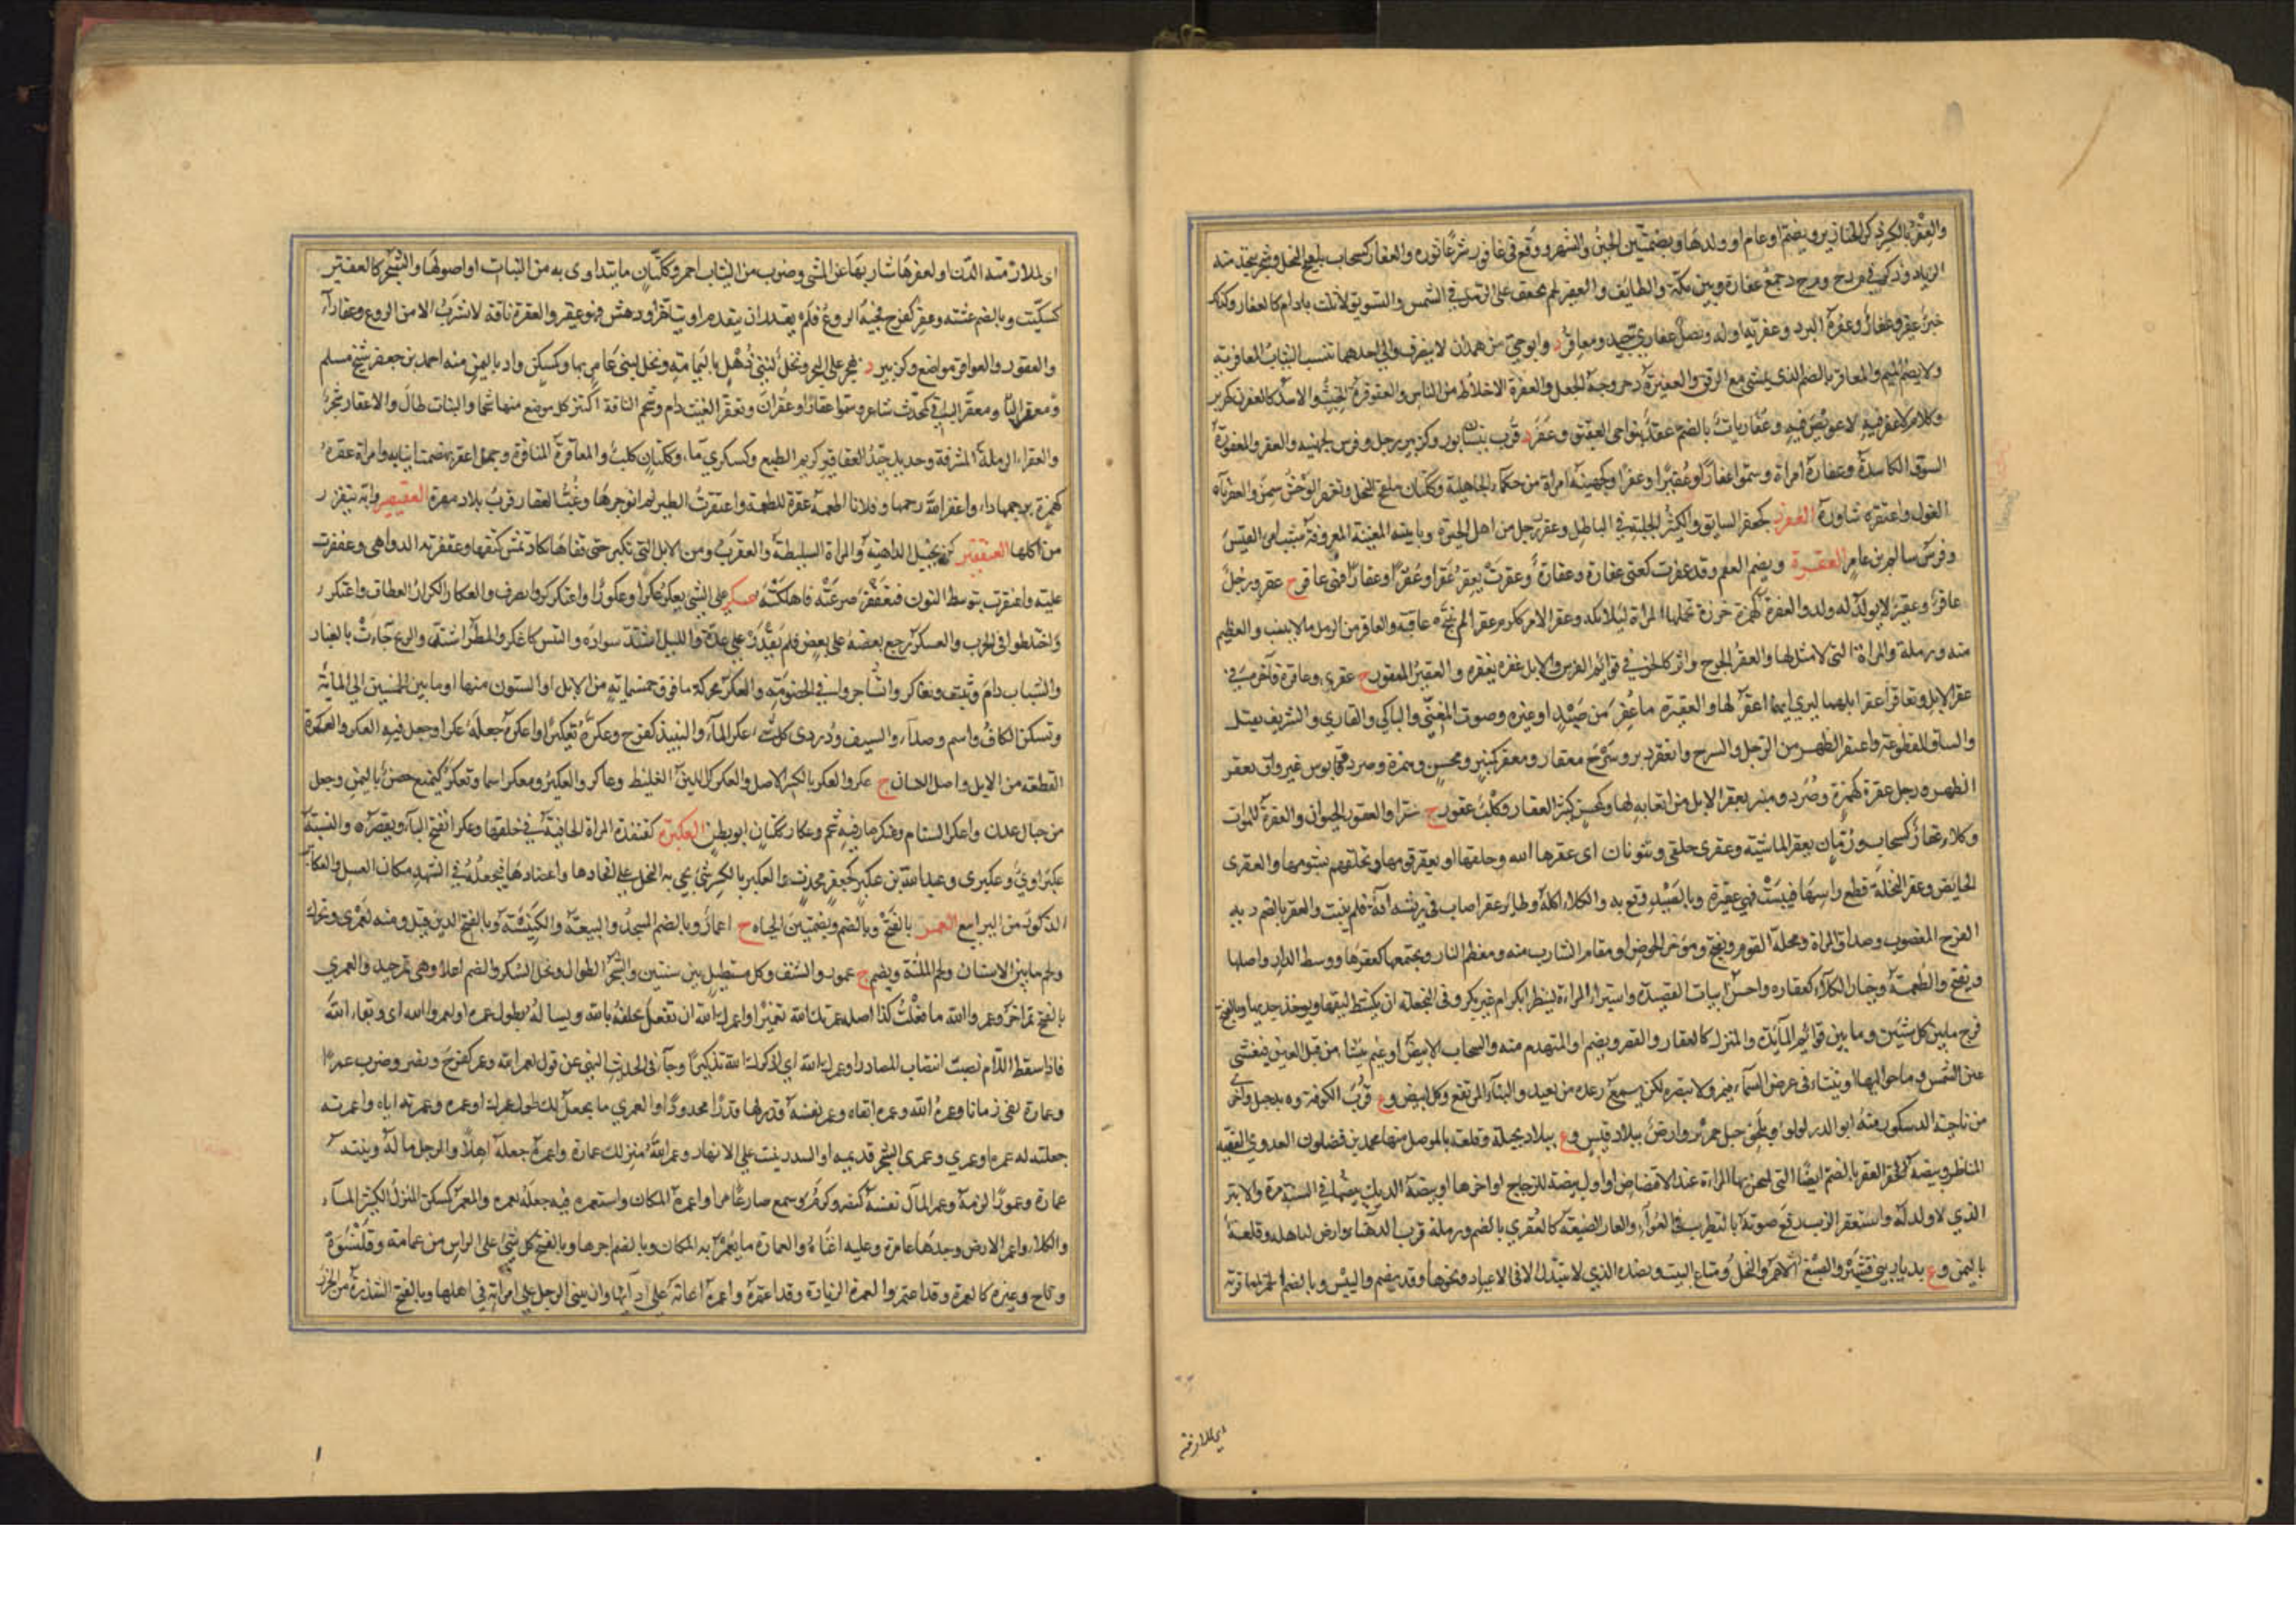 والعفر بالكسر ذكر الخنازير ويضم او عام او ولدها وبضمتين الحين والشهر ووقع في عافور شر عاثوره والعفار كسحاب تلقيح النخل وشجر يتخذ منه
الزناد وذكر في مرخ و م ر خ د جمع عفارة وبين مكة والطائف والعفير لحم يجفف على الرمل في الشمس والسويق لا يلت بادام كالعفار وكذلك
خبز عفير وعفار وعفرة البرد وعفرته اوله ونصل عفاري جيد ومعافر د وابو حي من همدان لا ينصرف والى احدهما تنسب الثياب المعافرية
ولا يضم الميم والمعافر بالضم الذي يمشي مع الرفق والعفيرة دحروجة الجعل والعفرة الاخلاط من الناس والعفرفرة الخبث والاسد كالعفرن
وكلام لا عفر فيه لا عويص فيه وعفاريات بالضم عقد بنواحي العقيق وعفر د قرب نيسابور وكزبير رجل وفرس لجهينة والعفر والمعفورة
السوق الكاسدة وعفارة امراة وسموا عفارا وعفيرا وعفرا وكجهينة امراة من حكماء الجاهلية وككتان ملقح النخل وتعفر الوحش سمن والعفرناة
الغول واعتفره ساوره العفزر كجعفر السابق والكثير الجلبة في الباطل وعفزر رجل من اهل الحيرة وبابنته المغنية المعروفة شبب امرؤ القيس
وفرس سالم بن عامر العقرة ويضم العقم وقد عقرت كعنى عقارة وعقارة وعقرت يعقر عقرا وعقرا وعقارا فهي عاقر ج عقر ورجل
عاقر وعقير لا يولد له ولد والعقرة كهمزة خرزة تحملها المراة لئلا تلد وعقر الامر ككرم عقرا لم ينتج عاقبة والعاقر من الرمل ما لا ينبت والعظيم
منه ورملة والمراة التي لا مثل لها والعقر الجرح واثر كالحز في قوائم الفرس والابل عقره يعقره والعقير المعقور ج عقرى وعاقره فاخره في
عقر الابل وتعاقرا عقرا ابلهما ليرى ايهما اعقر لها والعقيرة ما عقر من صيد او غيره وصوت المغني والباكي والقاري والشريف يقتل
والساق المقطوعة واعتقر الظهر من الرحل والسرج وانعقر دبر وسرج معقار ومعقر كمنبر ومحسن وهمزة وصرد وقابوس غير واق يعقر
الظهر ورجل عقرة كهمزة وصرد ومنبر يعقر الابل من اتعابه لها وكمحسن كثير العقار وكلب عقور ج عقر او العقور للحيوان والعقرة للموات
وكلاء عقار كسحاب ورمان يعقر الماشية وعقرى حلقى وينونان اى عقرها الله وحلقها او تعقر قومها وتحلقهم بشومها والعقرى
الحايض وعقر النخلة قطع راسها فيبست فهي عقيرة وبالصيد وقع به والكلاء اكله وطائر عقر اصاب في ريشه آفة فلم ينبت والعقر بالضم دية
الفرج المغصوب وصداق المراة ومحلة القوم ويفتح ومؤخر الحوض او مقام الشارب منه ومعظم النار ومجتمعها كعقرها ووسط الدار واصلها
ويفتح والطعمة وخيار الكلاء كعقاره واحسن ابيات القصيدة واستبراء المراة لينظر ابكر ام غير بكر وفي النخلة ان يكشط ليفها ويوخذ جذبها وبالفتح
فرج ما بين كل شيئين وما بين قوائم المائدة والمنزل كالعقار والقصر ويضم او المتهدم منه والسحاب الابيض او غيم ينشا من قبل العين فيغشى
عين الشمس وما حواليها او ينشاء في عرض السماء فيمر ولا تبصره لكن يسمع رعده من بعيد والبناء المرتفع وكل ابيض وع قرب الكوفة وة بدجيل واخرى
من ناحية الدسكور منه ابو الدر لؤلؤ و بلحف جبل حمرين وارض ببلاد قيس وع ببلاد بجيلة وقلعة بالموصل منها محمد بن فضلون العدوي الفقيه
المناظر وبيضة العقر بالضم ايضا التي تمتحن بها المراة عند الاقتضاض او اول بيضة للدجاج او اخرها او بيضة الديك يبيضها في السنة مرة والابتر
الذي لا ولد له واستعقر الذئب رفع صوته بالتطريب في العواء والعقار الضيعة كالعقرى بالضم ورملة قرب الدهناء وارض لباهلة وقلعة
باليمن وع بديار بني قشير والصبغ الاحمر والنخل ومتاع البيت ونضده الذي لا يبتذل الا في الاعياد ونحوها وقد يضم واليبيس وبالضم الخمر لمعاقرتها
اى لملازمته
اى لملازمته الدن او لعقرها شاربها عن المشى وضرب من الثياب احمر وككتان ما يتداوى به من النبات او اصولها والشجر كالعقير
كسكيت وبالضم عشبة وعقر كفرح فجئه الروع فلم يقدر ان يتقدم او يتاخر او دهش فهو عقير والعقرة ناقة لا تشرب الا من الروع وعقاراء
والعقور والعواقر مواضع وكزبير د بهجر على البحر ونخل لبني ذهل باليمامة ونخل لبني عامر بها وكمسكن واد باليمن منه احمد بن جعفر شيخ مسلم
ومعقر البارقي كمحدث شاعر وسموا عقارا وعقران وتعقر الغيث دام وشحم الناقة اكتنز كل موضع منها شحما والنبات طال والاعقار شجر
والعقراء الرملة المشرفة وحديد جيد العقاقير كريم الطبع وكسكري ماء وككتان كلب والمعاقرة المنافرة وجمل اعقر تهضمت انيابه وامراة عقرة
كهمزة برحمها داء واعقر الله رحمها وفلانا اطعمه عقرة للطعمة واعتقرت الطير لم ازجرها وغب العقار قرب بلاد مهرة العقيصير دابة يتقزز
من اكلها العنقفير كزنجبيل الداهية والمراة السليطة والعقرب ومن الابل التي تكبر حتى قفاها كاد تمس كتفها وعقفرته الدواهي وعقفرت
عليه واعقنقرت بتوسط النون فتعقفر صرعته فاهلكته عكر على الشي يعكر عكرا وعكورا واعتكر كر وانصرف والعكار الكرار العطاف واعتكر
واختلطوا في الحرب والعسكر رجع بعضه على بعض فلم يقدر على عده والليل اشتد سواده والتبس كاعكر والمطر اشتد والريح جاءت بالغبار
والشباب دام وثبت وتعاكروا تشاجروا في الخصومة والعكر محركة ما فوق خمسماية من الابل او الستون منها او ما بين الخمسين الى المائة
وتسكن الكاف واسم وصداء السيف ودردى كل شيء عكر الماء والنبيذ كفرح وعكره تعكيرا واعكره جعله عكرا وجعل فيه العكر والعكرة
القطعة من الابل واصل اللسان ج عكر والعكر بالكسر الاصل والعكركر اللبن الغليظ وعاكر والعكير ومعكر اسما وتعكر كتمنع حصن باليمن وجبل
من جبال عدن واعكر السنام وعكر صار فيه شحم وعكار ككتان ابو بطن العكبرة كقنفذة المراة الجافية في خلقها وعكبرا بفتح الباء ويقصر ة والنسبة
عكبراوي وعكبرى وعبد الله بن عكبر كجعفر محدث والعكبر بالكسر شئ تجي به النحل على افخاذها واعضادها فتجعله في الشهد مكان العسل والعكابر
الذكور من اليرابيع العمر بالفتح وبالضم وبضمتين الحياة ج اعمار وبالضم المسجد والبيعة والكنيسة وبالفتح الدين قيل ومنه لعمرى ويحرك
ولحم ما بين الاسنان ولحم اللثة ويضم ج عمور والشنف وكل مستطيل بين سنتين والشجر الطوال ونخل السكر والضم اعلا وهي تمر جيد والعمرى
بالفتح تمر اخر وعمر والله ما فعلت كذا اصله عمرتك الله تعميرا واعمرك الله ان تفعل تحلفه بالله ويسال له بطول عمره او لعمر الله اى وبقاء الله
فاذا سقط اللام نصبت انتصاب المصادر او عمرك الله اى اذكرك الله تذكيرا وجاء في الحديث النهى عن قول لعمر الله وعمر كفرح ونصر وضرب عمرا
وعمارة بقى زمانا وعمره الله وعمره ابقاه وعمر نفسه قدر لها قدرا محدودا والعمرى ما يجعل لك طول عمرك او عمره وعمرته اياه واعمرته
جعلته له عمره او عمرى وعمرى الشجر قديمه او السدر ينبت على الانهار وعمر الله منزلك عمارة واعمره جعله اهلا والرجل ماله وبيته
عمارة وعمورا لزمه وعمر المال نفسه كنصر وكرم وسمع صار عامرا واعمره المكان واستعمره فيه جعله يعمره والمعمر كمسكن المنزل الكثير الماء
والكلاء واعمر الارض وجدها عامرة وعليه اغناه والعمارة ما يعمر به المكان وبالضم اجرها وبالفتح كل شئ على الراس من عمامة وقلنسوة
وتاج وغيره كالعمرة وقد اعتمر والعمرة الزيارة وقد اعتمر واعمره اعانه على ادائها وان يبنى الرجل على امراته في اهلها وبالفتح الشذرة من الخرز